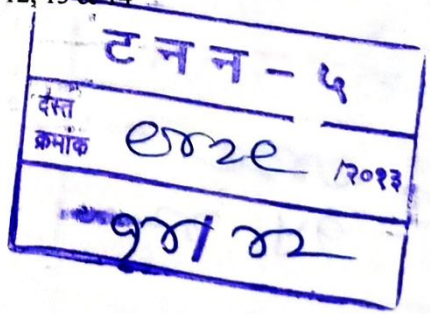 ट न न - ५
दस्त
क्रमांक ९४२९ /२०१३
१४/ ४२